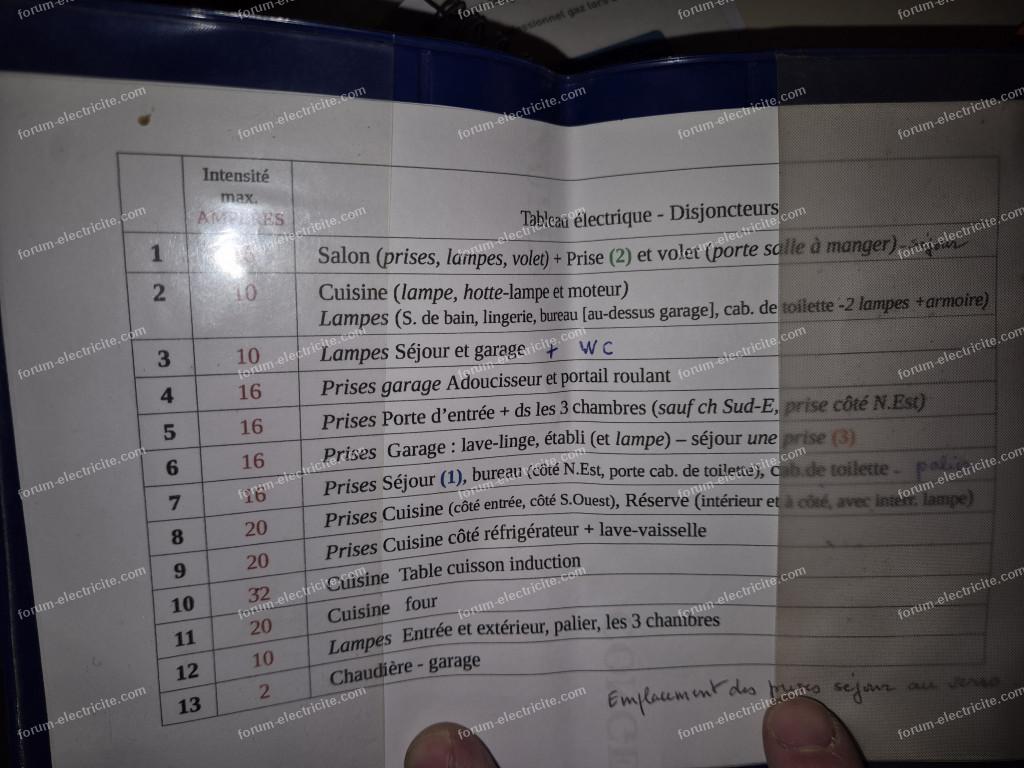 essionnel gaz lors
Intensité
max.
AMPÈRES
Tableau électrique - Disjoncteurs
1 Salon (prises, lampes, volet) + Prise (2) et volet (porte salle à manger) - séjour
2 10 Cuisine (lampe, hotte-lampe et moteur)
Lampes (S. de bain, lingerie, bureau [au-dessus garage], cab. de toilette -2 lampes +armoire)
3 10 Lampes Séjour et garage + WC
4 16 Prises garage Adoucisseur et portail roulant
5 16 Prises Porte d'entrée + ds les 3 chambres (sauf ch Sud-E, prise côté N.Est)
6 16 Prises Garage : lave-linge, établi (et lampe) – séjour une prise (3)
7 16 Prises Séjour (1), bureau (côté N.Est, porte cab. de toilette), cab.de toilette - palier
8 20 Prises Cuisine (côté entrée, côté S.Ouest), Réserve (intérieur et à côté, avec interr. lampe)
9 20 Prises Cuisine côté réfrigérateur + lave-vaisselle
10 32 Cuisine Table cuisson induction
11 20 Cuisine four
12 10 Lampes Entrée et extérieur, palier, les 3 chambres
13 2 Chaudière - garage
Emplacement des prises séjour au verso
forum-electricite.com